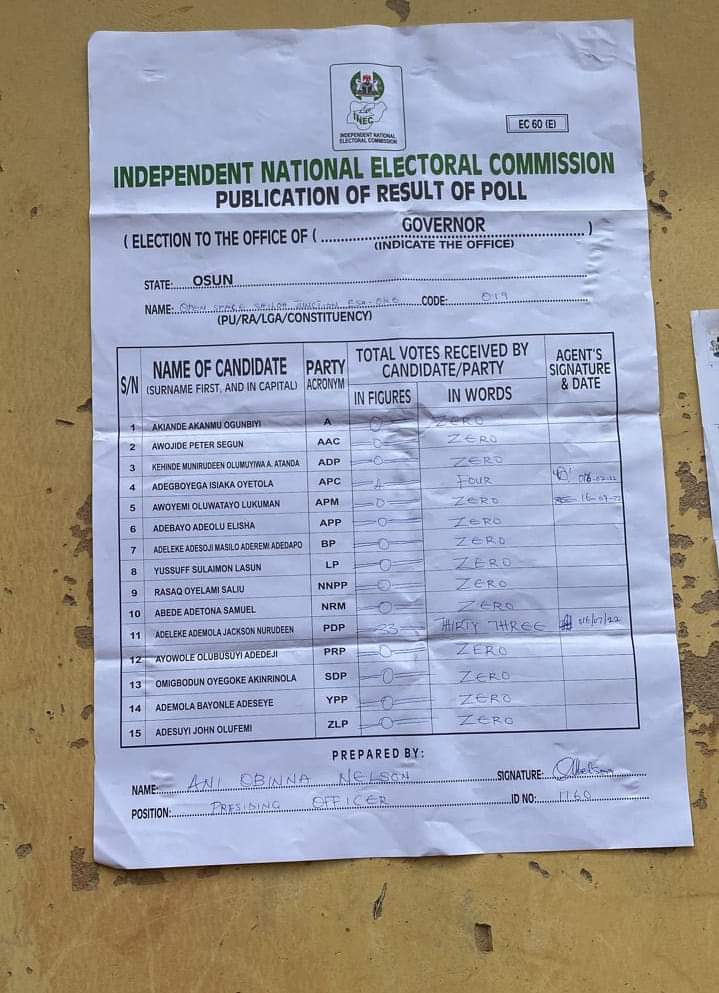 INEC
INDEPENDENT NATIONAL
ELECTORAL COMMISSION
EC 60 (E)
INDEPENDENT NATIONAL ELECTORAL COMMISSION
PUBLICATION OF RESULT OF POLL
( ELECTION TO THE OFFICE OF ( GOVERNOR )
(INDICATE THE OFFICE)
STATE: OSUN
NAME: OPEN SPACE SAILOR JUNCTION ESA-OKE CODE: 019
(PU/RA/LGA/CONSTITUENCY)
S/N NAME OF CANDIDATE (SURNAME FIRST, AND IN CAPITAL) PARTY ACRONYM TOTAL VOTES RECEIVED BY CANDIDATE/PARTY AGENT'S SIGNATURE & DATE
IN FIGURES IN WORDS
1 AKIANDE AKANMU OGUNBIYI A 0 ZERO
2 AWOJIDE PETER SEGUN AAC 0 ZERO
3 KEHINDE MUNIRUDEEN OLUMUYIWA A. ATANDA ADP 0 ZERO
4 ADEGBOYEGA ISIAKA OYETOLA APC 4 FOUR
5 AWOYEMI OLUWATAYO LUKUMAN APM 0 ZERO
6 ADEBAYO ADEOLU ELISHA APP 0 ZERO
7 ADELEKE ADESOJI MASILO ADEREMI ADEDAPO BP 0 ZERO
8 YUSSUFF SULAIMON LASUN LP 0 ZERO
9 RASAQ OYELAMI SALIU NNPP 0 ZERO
10 ABEDE ADETONA SAMUEL NRM 0 ZERO
11 ADELEKE ADEMOLA JACKSON NURUDEEN PDP 33 THIRTY THREE 16/07/22
12 AYOWOLE OLUBUSUYI ADEDEJI PRP 0 ZERO
13 OMIGBODUN OYEGOKE AKINRINOLA SDP 0 ZERO
14 ADEMOLA BAYONLE ADESEYE YPP 0 ZERO
15 ADESUYI JOHN OLUFEMI ZLP 0 ZERO
PREPARED BY:
NAME: ANI OBINNA NELSON SIGNATURE:
POSITION: PRESIDING OFFICER ID NO: 1160